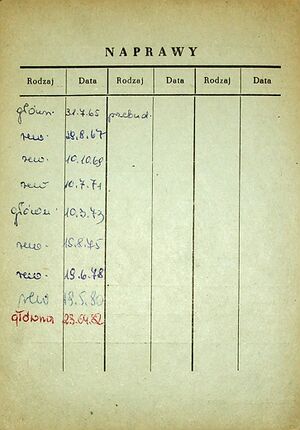 NAPRAWY
Rodzaj Data Rodzaj Data Rodzaj Data
główn. 31.7.65 przebud.
rew. 29.8.67
rew. 10.10.69
rew 10.7.71
główn. 10.3.73
rew. 18.8.75
rew. 19.6.78
rew 19.5.80
główna 23.04.82